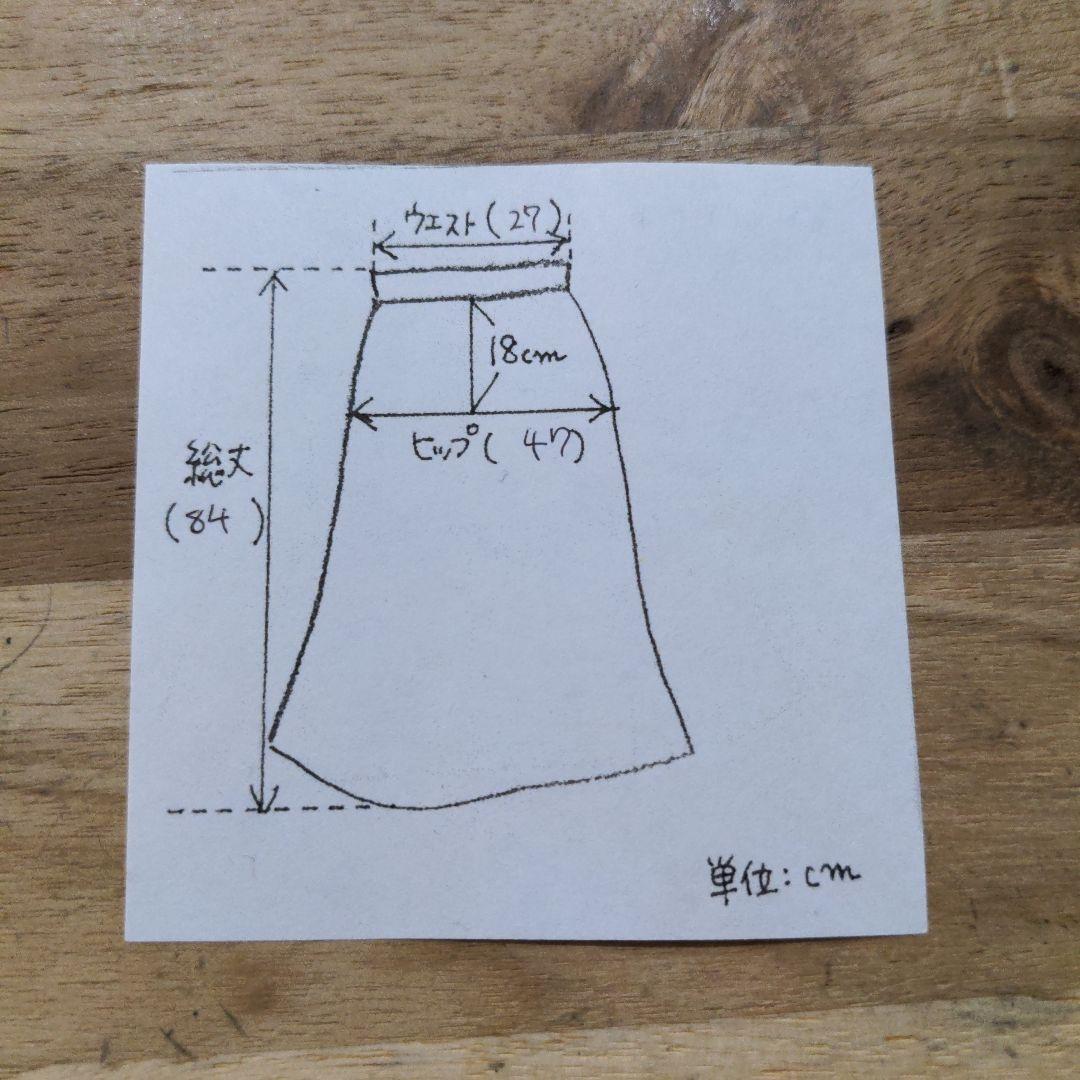 ウエスト(27)
18cm
ヒップ( 47)
総丈
(84 )
単位:cm